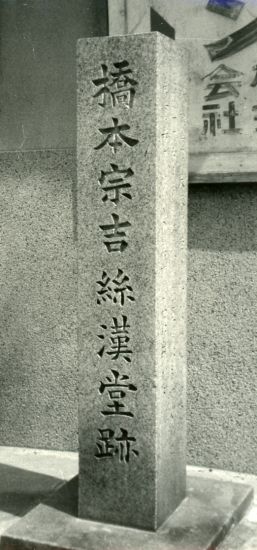 橋本宗吉絲漢堂跡
会社